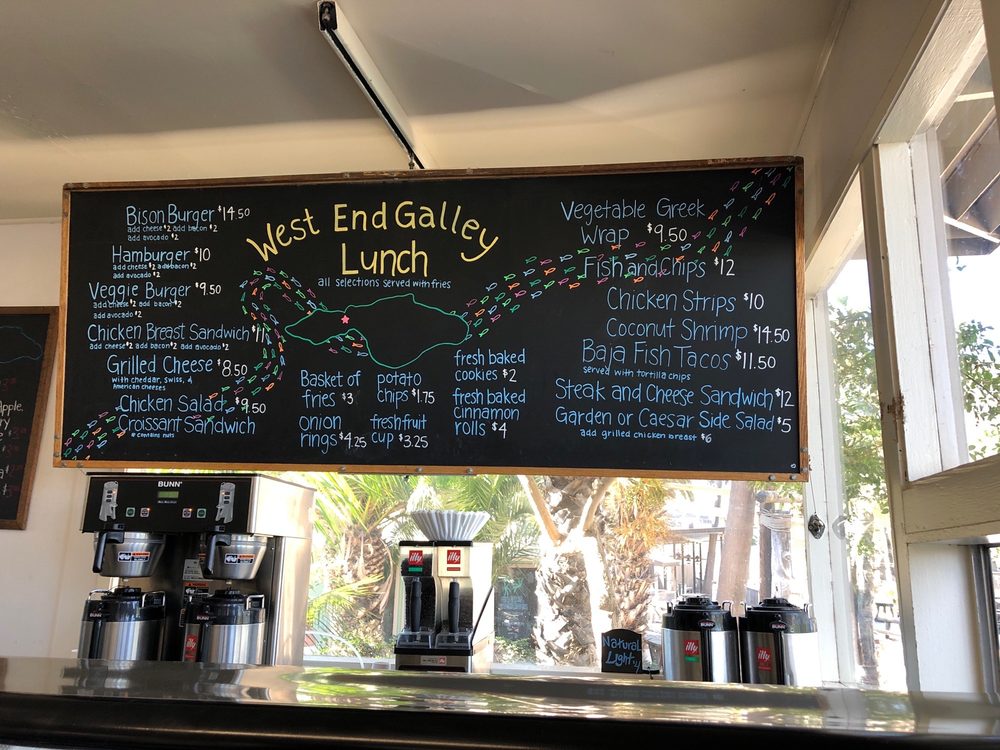 West End Galley
Lunch
all selections served with fries
Bison Burger $14.50
add cheese $2 add bacon $2
add avocado $2
Hamburger $10
add cheese $2 add bacon $2
add avocado $2
Veggie Burger $9.50
add cheese $2 add bacon $2
add avocado $2
Chicken Breast Sandwich $11
add cheese $2 add bacon $2 add avocado $2
Grilled Cheese $8.50
with cheddar, swiss, &
American cheeses
Chicken Salad $9.50
Croissant Sandwich
* contains nuts
Basket of
fries $3
onion
rings $4.25
potato
chips $1.75
fresh fruit
cup $3.25
fresh baked
cookies $2
fresh baked
cinnamon
rolls $4
Vegetable Greek
Wrap $9.50
Fish and Chips $12
Chicken Strips $10
Coconut Shrimp $14.50
Baja Fish Tacos $11.50
served with tortilla chips
Steak and Cheese Sandwich $12
Garden or Caesar Side Salad $5
add grilled chicken breast $6
Apple,
BUNN
illy
illy
illy
Natural
Light
BUNN
illy
BUNN
illy